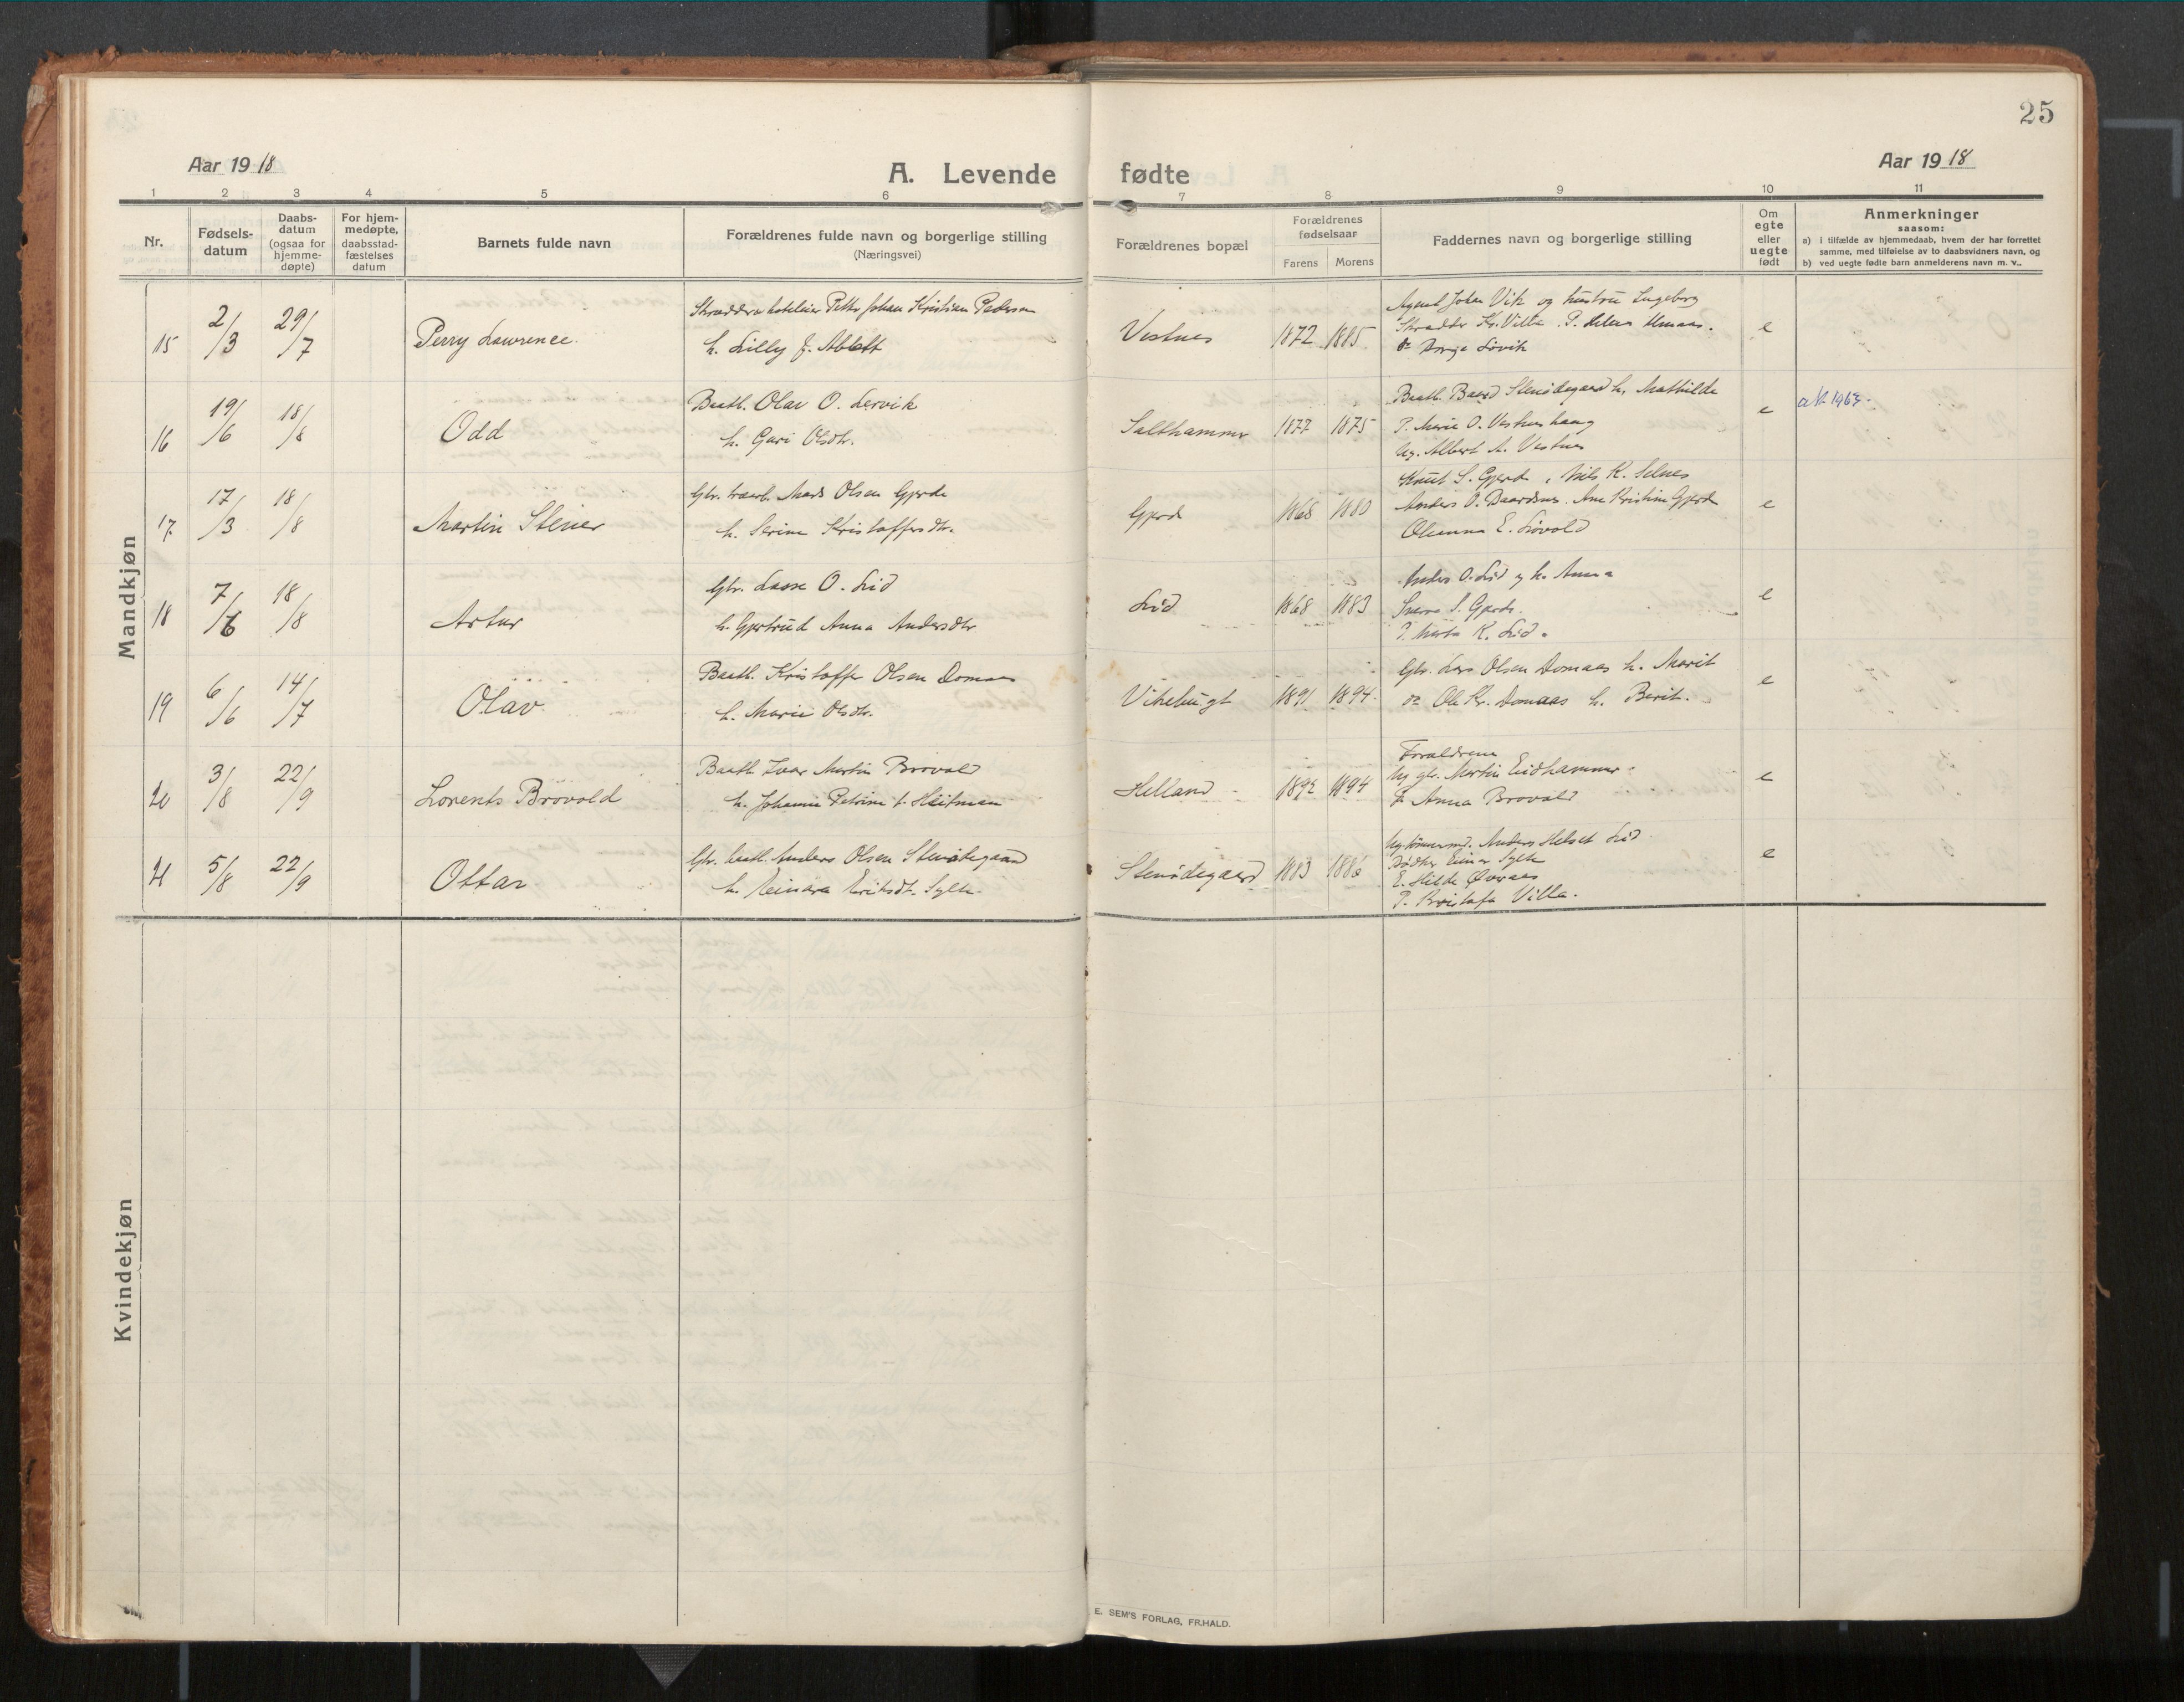 25
Aar 1918
A. Levende fødte
Aar 1918
1 2 3 4 5 6 7 8 9 10 11
Nr.
Fødsels-
datum
Daabs-
datum
(ogsaa for
hjemme-
døpte)
For hjem-
medøpte,
daabsstad-
fæstelses
datum
Barnets fulde navn
Forældrenes fulde navn og borgerlige stilling
(Næringsvei)
Forældrenes bopæl
Forældrenes
fødselsaar
Farens Morens
Faddernes navn og borgerlige stilling
Om
egte
eller
uegte
født
Anmerkninger
saasom:
a) i tilfælde av hjemmedaab, hvem der har forrettet
samme, med tilføielse av to daabsvidners navn, og
b) ved uegte fødte barn anmelderens navn m. v..
Mandkjøn
15 2/3 29/7 Perry Lawrence.
Johan Kristian Pedersen
h. Lilly f. Ablett
Vestnes 1872 1885
Agent Johan Vik og hustru Ingeborg
Kr. Villa. P.
Løvik
e
16 19/6 18/8 Odd
Baatb. Olav O. Lervik
h. Guri Olsdtr.
Salthammer 1877 1875
Baatb. Baard Stenødegaard h. Mathilde
P. Marie O. Vestneshaug
Ug. Albert A. Vestnes
e
17 17/3 18/8 Martin Stener
Gbr. Mads Olsen Gjerde
h. Serine Kristoffersdtr.
Gjerde 1868 1880
Knut S. Gjerde, Nils K. Selnes
Anders O. Baardsnes. Ane Kristine Gjerde
Oleanna E. Løvold
e
18 7/6 18/8 Artur
Gbr. Lasse O. Lid
h. Gjertrud Anna Andersdtr
Lid 1868 1883
Anders O. Lid og h. Anna
S. Gjerde.
P. K. Lid.
e
19 6/6 14/7 Olav
Baatb. Kristoffer Olsen Domaas
h. Marie Olsdtr.
Vikebugt 1891 1894.
Gbr. Lars Olsen Domaas h. Marit
Ole Kr. Domaas h. Berit.
e
20 3/8 22/9 Lorents Brovold
Baatb. Ivar Martin Brovold
h. Johanne Petrine f. Heitman
Helland 1892 1894
Forældrene
Ug. gbr. Martin Eidhammer
P. Anna Brovold
e
21 5/8 22/9 Ottar
Gbr. baatb. Anders Olsen Stenødegaard
h. Einara Eriksdt. Sylte.
Stenødegaard 1883 1886
Anders Helset Lid
Bødker Einar Sylte
E. Hilde Øveraas
P. Villa.
e
Kvindekjøn
E. SEM'S FORLAG, FR.HALD.